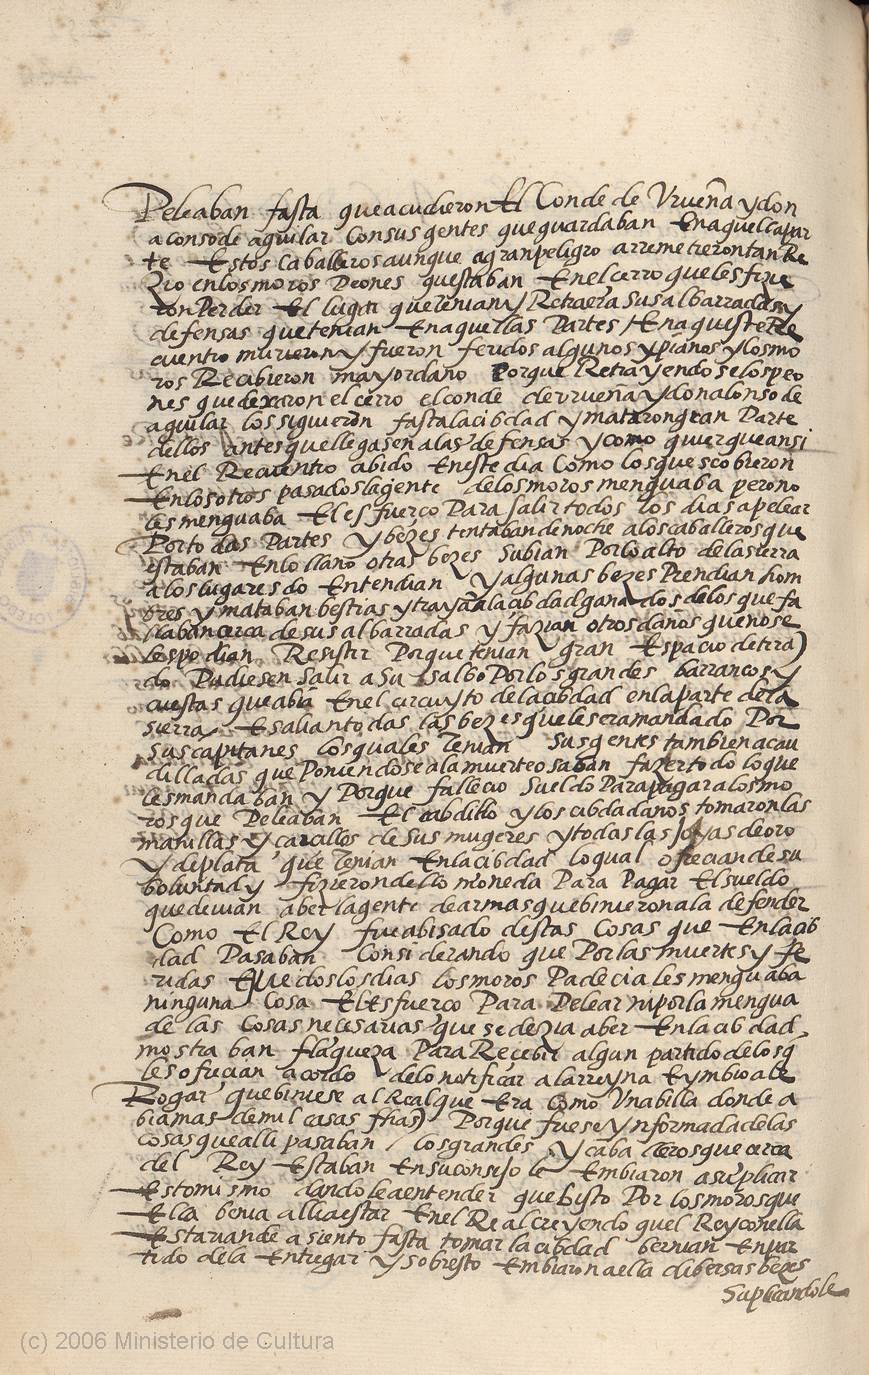 Peleaban fasta que acudieron El Conde de Vrueña y don
alonso de aguilar Con sus gentes que guardaban En aquella par
te Estos Caballeros aunque a gran peligro arremetieron tan Re
zio en los moros Peones questaban En el cerro que les fizie
ron Perder El lugar que tenian y Retraer a sus albarradas y
defensas que tenian En aquellas Partes / En aquiste Re
cuentro murieron y fueron feridos algunos xpianos y los mo
ros Recibieron mayor daño Porque Retrayendose los peo
nes que dexaron el cerro el conde de vrueña y don alonso de
aguilar los siguieron fasta la cibdad y mataron gran Parte
dellos antes que llegasen a las defensas y como quier que ansi
En el Recuentro abido En este dia Como los que se obieron
En los otros pasados la gente de los moros menguaba pero no
les menguaba El esfuerço Para salir todos los dias a pelear
Por todas Partes y bezes tentaban de noche a los caballeros que
estaban En lo llano otras bezes subian Por lo alto de la sierra
a los lugares do Entendian y algunas bezes Prendian hom
bres y mataban bestias y trayan a la cibdad ganados de los que fa
llaban cerca de sus albarradas y fazian otros daños que no se
les podian Resistir Porque tenian gran Espacio de tierra
do Pudiesen salir a su salbo Por los grandes barrancos y
cuestas que abia En el circuyto de la cibdad en la parte de la
sierra E salian todas las bezes que les era mandado Por
sus capitanes los quales Tenian sus gentes tambien acau
dilladas que Poniendose a la muerte osaban fazer todo lo que
les mandaban y Porque fallecio sueldo Para pagar a los mo
ros que Peleaban El cabdillo y los cibdadanos tomaron las
manillas y carcillos de sus mugeres y todas las joyas de oro
y de plata que Tenian En la cibdad lo qual ofrecian de su
boluntad y fizieron dello moneda Para Pagar El sueldo
que devian aber la gente de armas que binieron a la defender
Como El Rey fue abisado destas Cosas que En la cib
dad Pasaban Considerando que Por las muertes y fe
ridas Que dos los dias los moros Padecia les menguaba
ninguna Cosa El Esfuerço Para Pelear ni por la mengua
de las Cosas necesarias que se dezia aber En la cibdad
mostraban flaqueza Para Recebir algun partido de los q̃
les ofrecian acordo de lo notificar a la rreyna E ymbio a le
Rogar que biniese al Real que Era Como Vna billa donde a
bia mas de mil casas fhas Porque fuese ynformada de las
cosas que alli pasaban / los grandes y caballeros que cerca
del Rey Estaban En su consejo le Embiaron a suplicar
Esto mismo dandole a entender que bisto Por los moros que
Ella benia alli a estar En el Real creyendo quel Rey con ella
Estarian de asiento fasta tomar la cibdad bernian En par
tido de la Entregar y sobresto Embiaron a ella dibersas bezes
Suplicandole
(c) 2006 Ministerio de Cultura